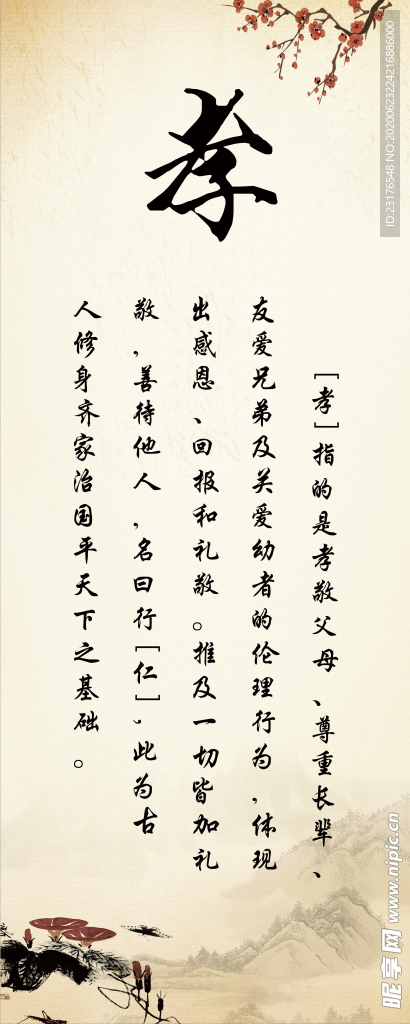 孝
[孝]指的是孝敬父母、尊重长辈、
友爱兄弟及关爱幼者的伦理行为，体现
出感恩、回报和礼敬。推及一切皆加礼
敬，善待他人，名曰行[仁]，此为古
人修身齐家治国平天下之基础。
ID:23176548 NO:20200623224216886000
昵享网 www.nipic.cn